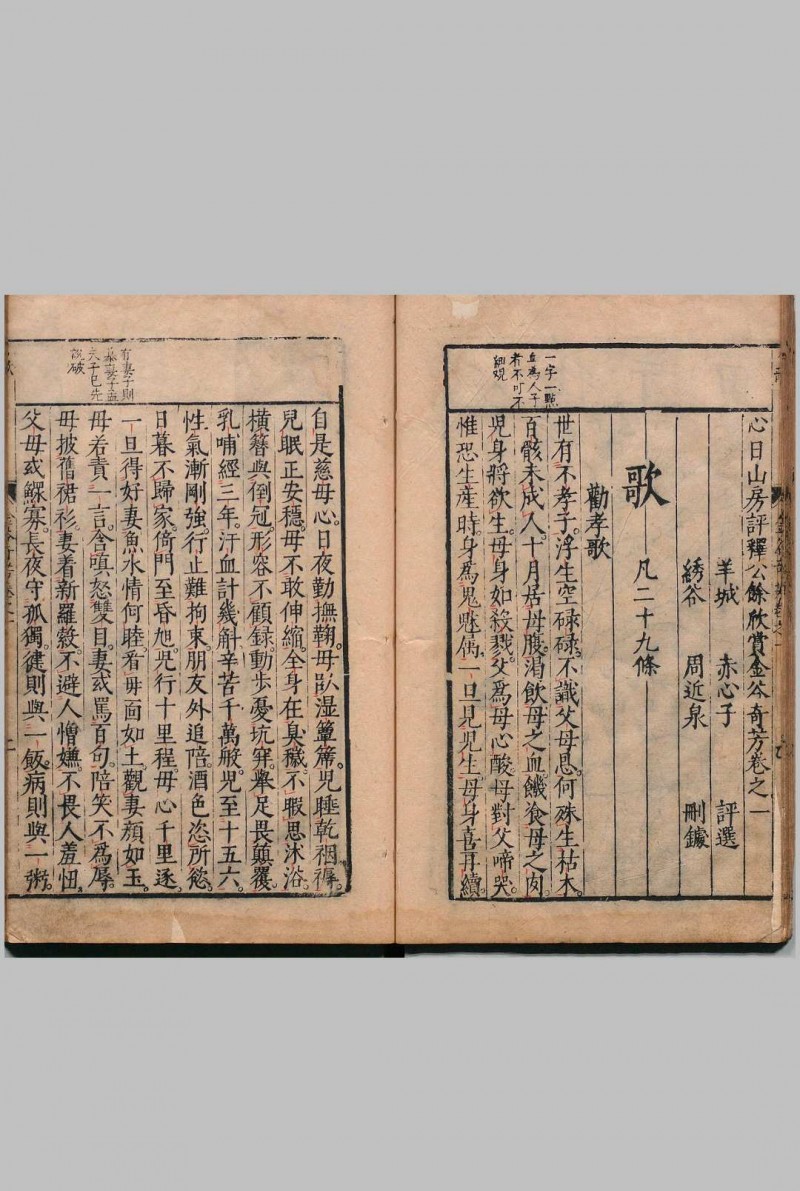 心日山房評釋公餘欣賞金谷奇芳卷之一
羊城 赤心子 評選
綉谷 周近泉 刪鐫
歌 凡二十九條
勸孝歌
一字一點
血爲人子
者不可不
細观
世有不孝子。浮生空碌碌。不識父母恩。何殊生枯木。
百骸未成人。十月居母腹。渴飲母之血。饑食母之肉。
児身將欲生。母身如殺戮。父爲母心酸。母對父啼哭。
惟恐生産時。身爲鬼魅侜。一旦見児生。母身喜再續。
自是慈母心。日夜勤撫鞠。母臥湿簟蓆。児睡乾裀褥。
兒眠正安穩。母不敢伸縮。全身在臭穢。不暇思沐浴。
橫簪與倒冠。形容不顧録。動步憂坑穽。舉足畏顛覆。
乳哺經三年。汗血計幾斛。辛苦千萬般。児至十五六。
性氣漸剛強。行止難拘束。朋友外追陪。酒色恣所慾。
日暮不歸家。倚門至昏旭。児行十里程。母心千里逐。
一旦得好妻。魚水情何睦。看母面如土。觀妻顔如玉。
有妻子則
慕妻子孟
夫子已先
說破
母若責一言。含嗔怒雙目。妻或罵百句。陪笑不爲辱。
母披舊裙衫。妻着新羅縠。不避人憎嫌。不畏人羞忸。
父母或鰥寡。長夜守孤獨。健則與一飯。病則與一粥。